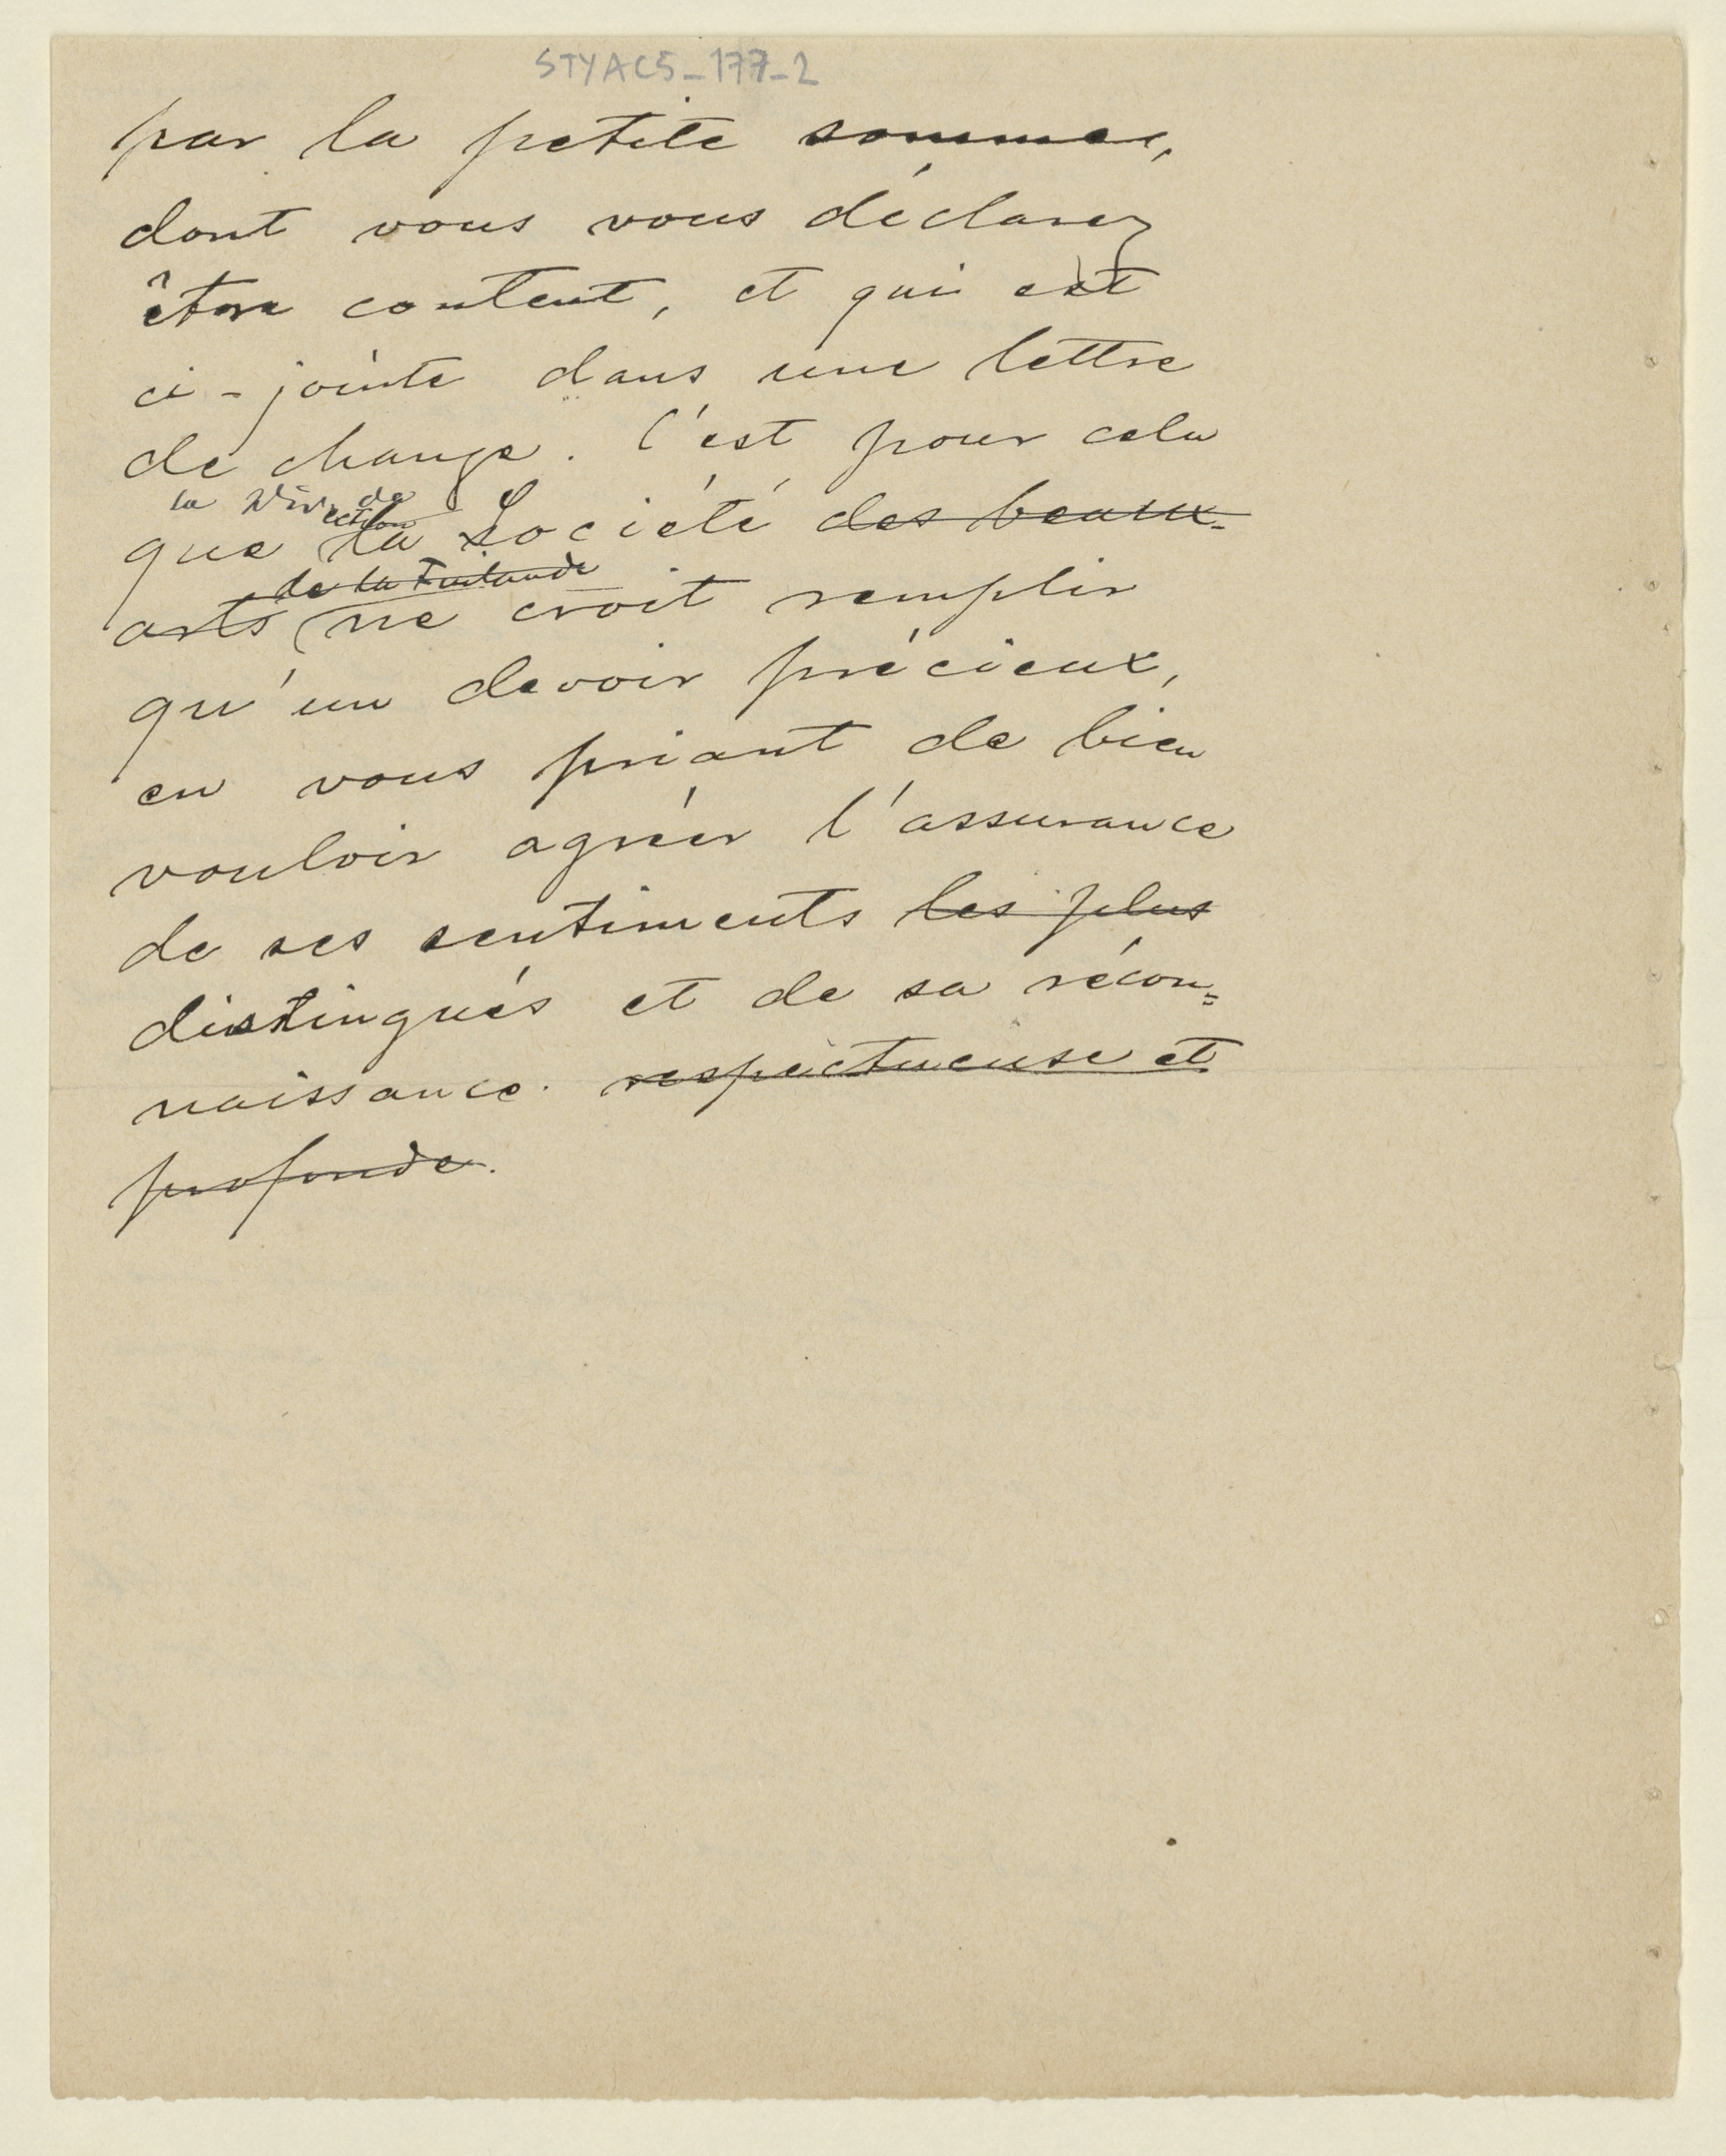 STYAC5_177_2
par la petite somme,
dont vous vous déclarez
être content, et qui est
ci-jointe dans une lettre
de change. C'est pour cela
la Direction de
que la Société des beaux-
de la Finlande
arts ne croit remplir
qu'un devoir précieux,
en vous priant de bien
vouloir agréer l'assurance
de ses sentiments les plus
distingués et de sa récon=
naissance. respectueuse et
profonde.